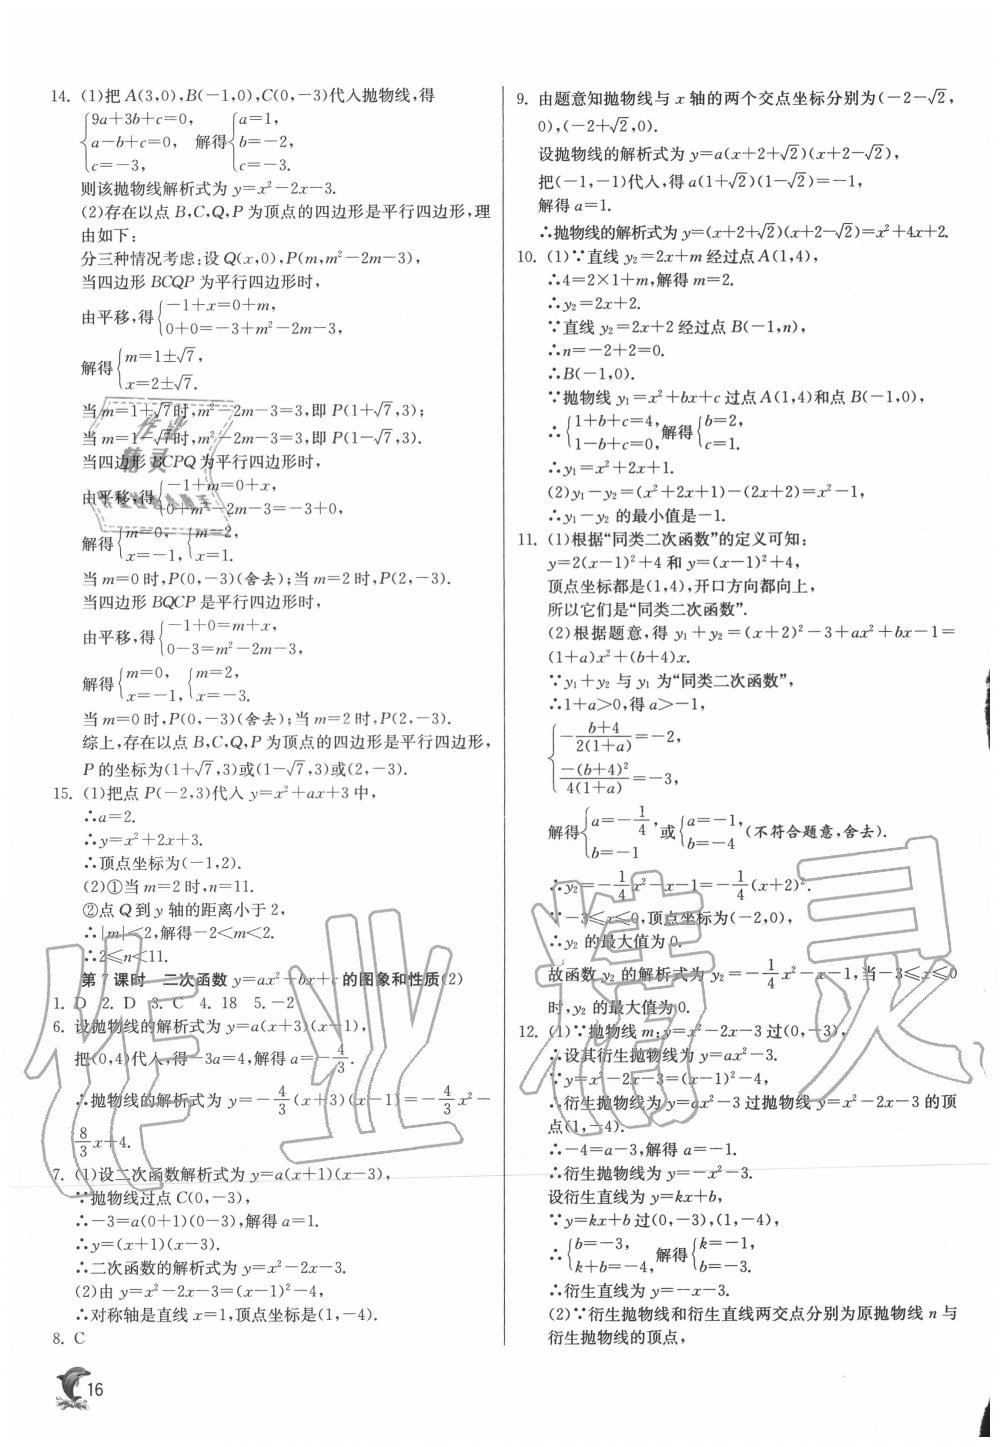 14. (1)把 A(3,0),B(-1,0),C(0,-3)代入抛物线,得
{9a+3b+c=0, a-b+c=0, c=-3, 解得{a=1, b=-2, c=-3.
则该抛物线解析式为 y=x²-2x-3.
(2)存在以点 B,C,Q,P 为顶点的四边形是平行四边形,理
由如下:
分三种情况考虑:设 Q(x,0),P(m,m²-2m-3),
当四边形 BCQP 为平行四边形时,
由平移,得{-1+x=0+m, 0+0=-3+m²-2m-3,
解得{m=1±√7, x=2±√7.
当 m=1+√7时,m²-2m-3=3,即 P(1+√7,3);
当 m=1-√7时,m²-2m-3=3,即 P(1-√7,3).
当四边形 BCPQ 为平行四边形时,
由平移,得{-1+m=0+x, 0+m²-2m-3=-3+0,
解得{m=0, x=-1, {m=2, x=1.
当 m=0 时,P(0,-3)(舍去);当 m=2 时,P(2,-3).
当四边形 BQCP 是平行四边形时,
由平移,得{-1+0=m+x, 0-3=m²-2m-3,
解得{m=0, x=-1, {m=2, x=-3.
当 m=0 时,P(0,-3)(舍去);当 m=2 时,P(2,-3).
综上,存在以点 B,C,Q,P 为顶点的四边形是平行四边形,
P 的坐标为(1+√7,3)或(1-√7,3)或(2,-3).
15. (1)把点 P(-2,3)代入 y=x²+ax+3 中,
∴a=2.
∴y=x²+2x+3.
∴顶点坐标为(-1,2).
(2)①当 m=2时,n=11.
②点 Q 到 y 轴的距离小于 2,
∴|m|<2,解得-2<m<2.
∴2≤n<11.
第 7 课时 二次函数 y=ax²+bx+c 的图象和性质(2)
1. D 2. D 3. C 4. 18 5. -2
6. 设抛物线的解析式为 y=a(x+3)(x-1),
把(0,4)代入,得-3a=4,解得 a=-4/3.
∴抛物线的解析式为 y=-4/3(x+3)(x-1)=-4/3x²-
8/3x+4.
7. (1)设二次函数解析式为 y=a(x+1)(x-3),
∵抛物线过点 C(0,-3),
∴-3=a(0+1)(0-3),解得 a=1.
∴y=(x+1)(x-3).
∴二次函数的解析式为 y=x²-2x-3.
(2)由 y=x²-2x-3=(x-1)²-4,
∴对称轴是直线 x=1,顶点坐标是(1,-4).
8. C
16
9. 由题意知抛物线与 x 轴的两个交点坐标分别为(-2-√2,
0),(-2+√2,0).
设抛物线的解析式为 y=a(x+2+√2)(x+2-√2),
把(-1,-1)代入,得 a(1+√2)(1-√2)=-1,
解得 a=1.
∴抛物线的解析式为 y=(x+2+√2)(x+2-√2)=x²+4x+2.
10. (1)∵直线 y₂=2x+m 经过点 A(1,4),
∴4=2×1+m,解得 m=2.
∴y₂=2x+2.
∵直线 y₂=2x+2 经过点 B(-1,n),
∴n=-2+2=0.
∴B(-1,0).
∵抛物线 y₁=x²+bx+c 过点 A(1,4)和点 B(-1,0),
∴{1+b+c=4, 1-b+c=0, 解得{b=2, c=1.
∴y₁=x²+2x+1.
(2)y₁-y₂=(x²+2x+1)-(2x+2)=x²-1,
∴y₁-y₂ 的最小值是-1.
11. (1)根据“同类二次函数”的定义可知:
y=2(x-1)²+4 和 y=(x-1)²+4,
顶点坐标都是(1,4),开口方向都向上,
所以它们是“同类二次函数”.
(2)根据题意,得 y₁+y₂=(x+2)²-3+ax²+bx-1=
(1+a)x²+(b+4)x.
∵y₁+y₂ 与 y₁ 为“同类二次函数”,
∴1+a>0,得 a>-1,
{-(b+4)/2(1+a)=-2, -(b+4)²/4(1+a)=-3,
解得{a=-1/4, b=-1 或{a=-1, b=-4 (不符合题意,舍去).
∴y₂=-1/4x²-x-1=-1/4(x+2)².
∵-3≤x≤0,顶点坐标为(-2,0),
∴y₂ 的最大值为 0.
故函数 y₂ 的解析式为 y₂=-1/4x²-x-1,当-3≤x≤0
时,y₂ 的最大值为 0.
12. (1)∵抛物线 m:y=x²-2x-3 过(0,-3),
∴设其衍生抛物线为 y=ax²-3.
∵y=x²-2x-3=(x-1)²-4,
∴衍生抛物线为 y=ax²-3 过抛物线 y=x²-2x-3 的顶
点(1,-4).
∴-4=a-3,解得 a=-1.
∴衍生抛物线为 y=-x²-3.
设衍生直线为 y=kx+b,
∵y=kx+b 过(0,-3),(1,-4),
∴{b=-3, k+b=-4, 解得{k=-1, b=-3.
∴衍生直线为 y=-x-3.
(2)∵衍生抛物线和衍生直线两交点分别为原抛物线 n 与
衍生抛物线的顶点,
作业
精灵
作业精灵